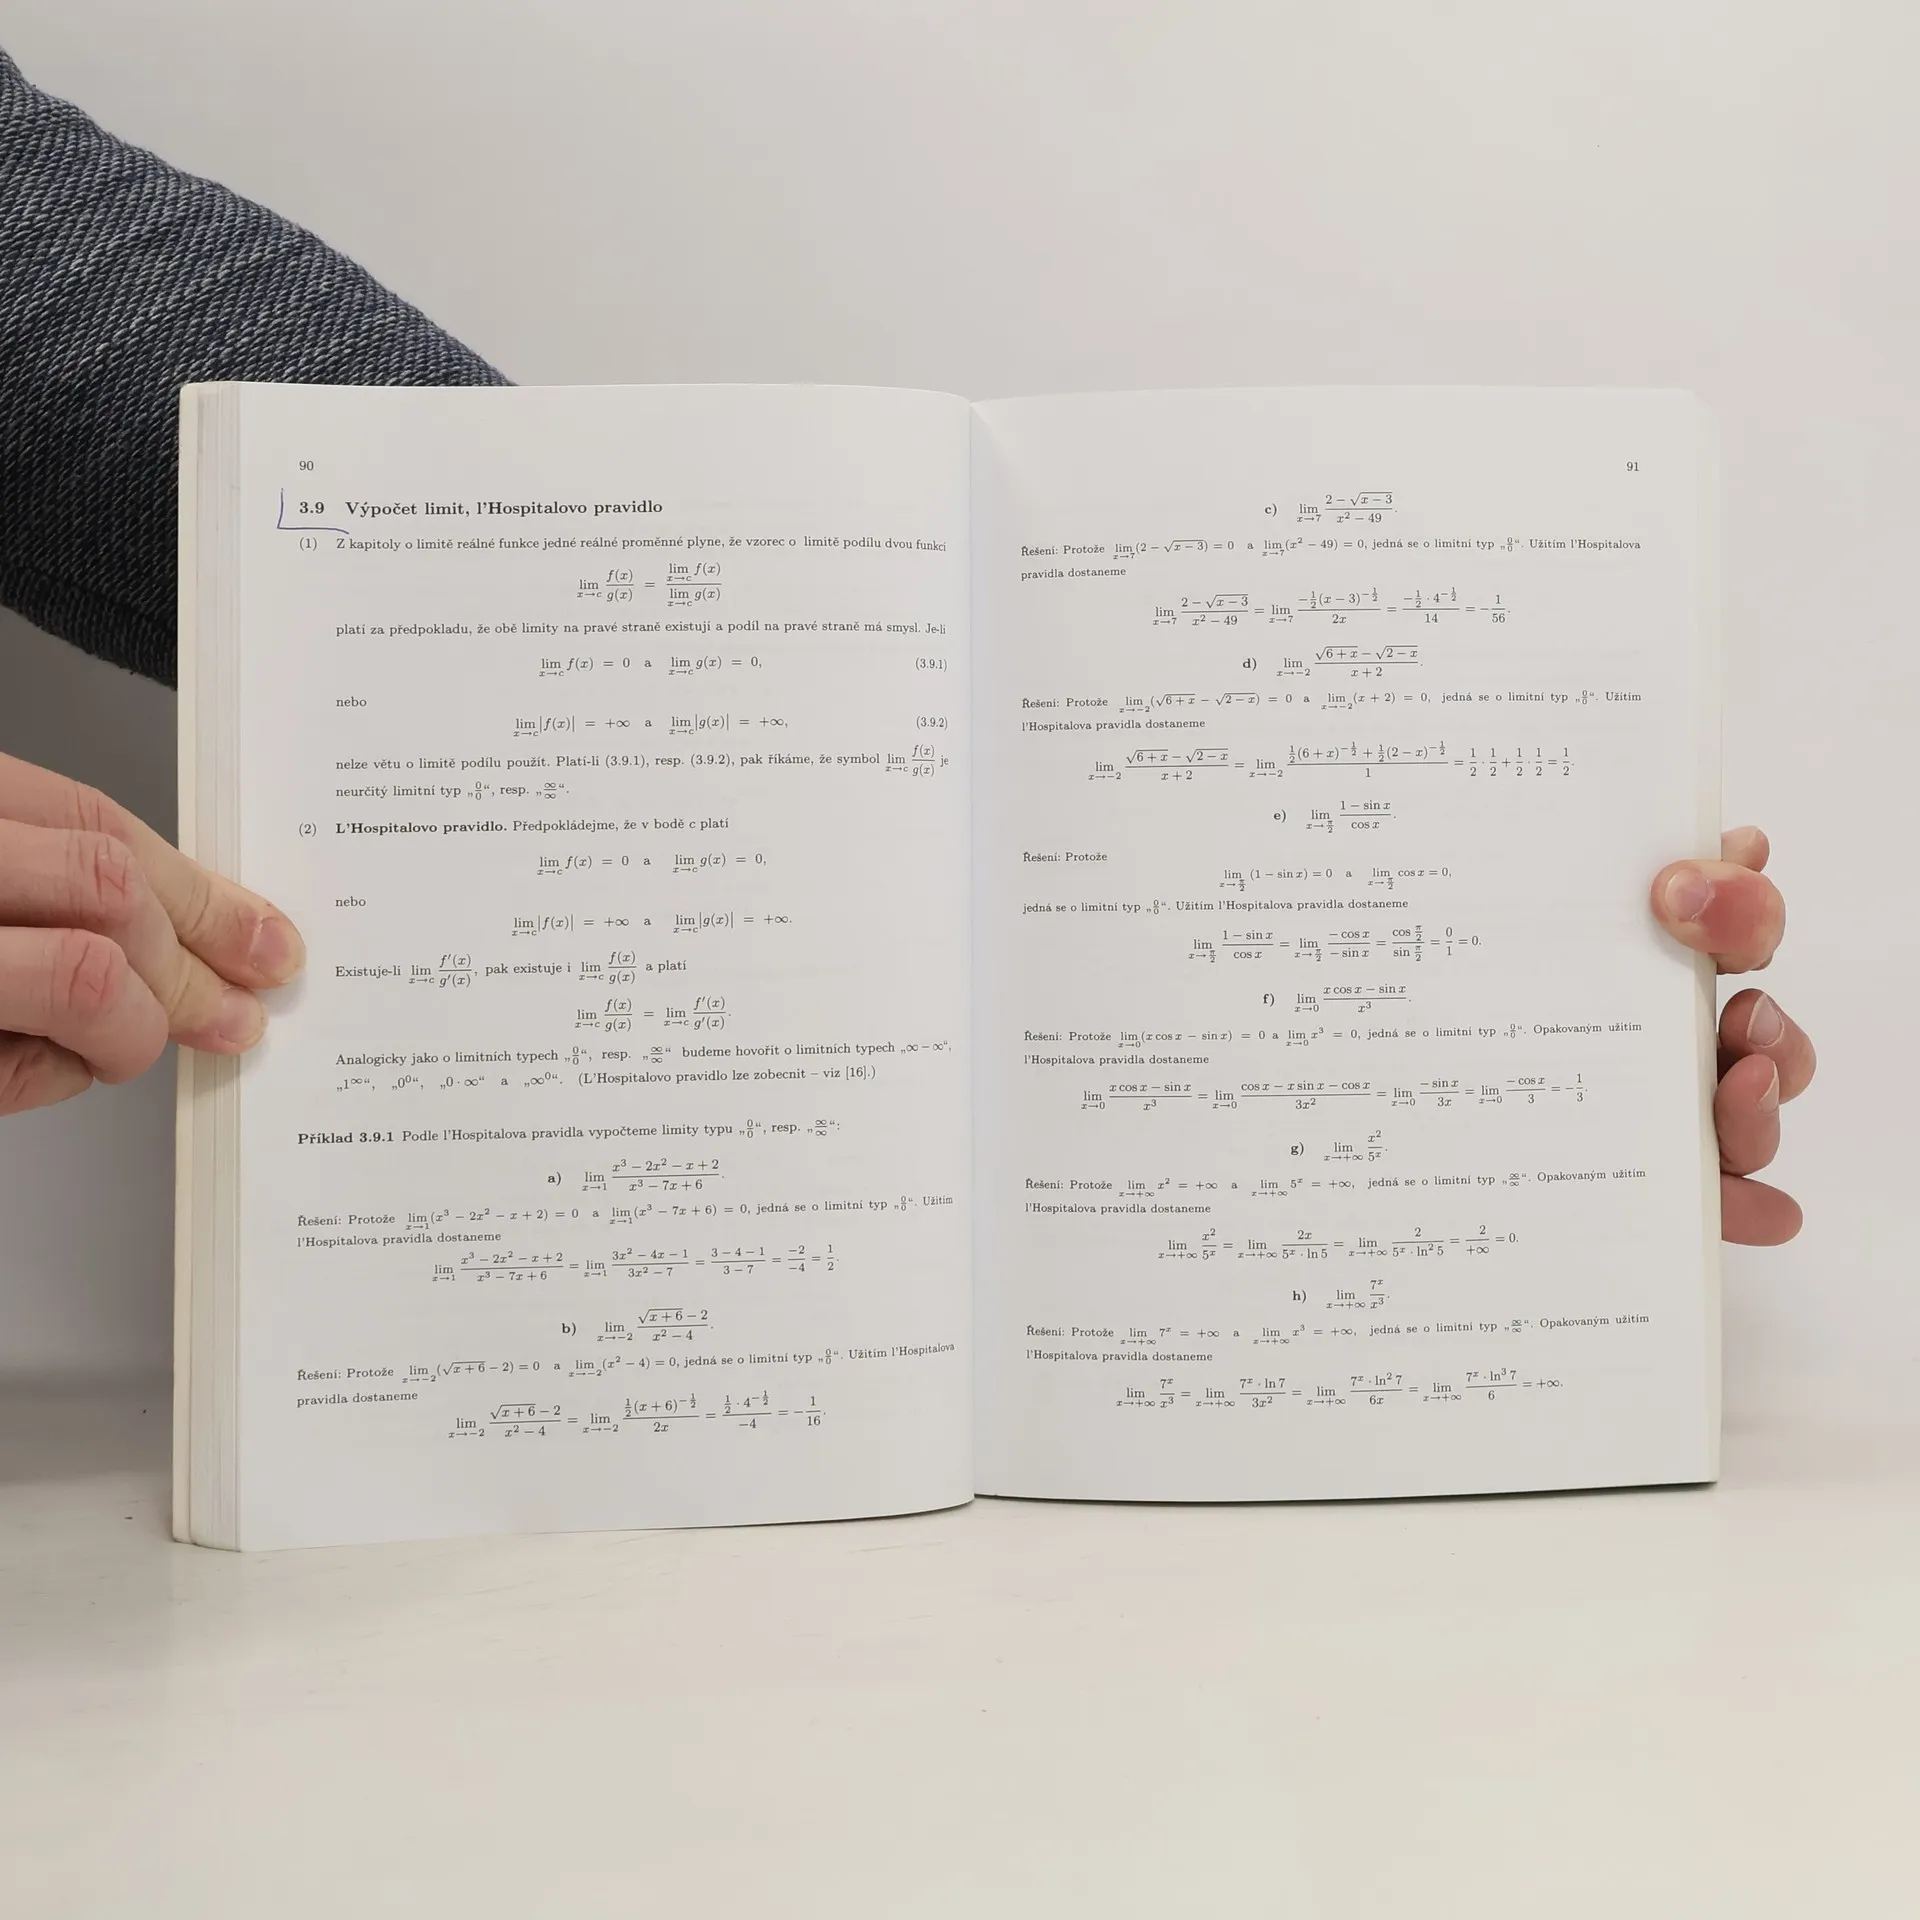 90
3.9 Výpočet limit, l'Hospitalovo pravidlo
(1) Z kapitoly o limitě reálné funkce jedné reálné proměnné plyne, že vzorec o limitě podílu dvou funkcí
lim_{x→c} f(x)/g(x) = lim_{x→c} f(x) / lim_{x→c} g(x)
platí za předpokladu, že obě limity na pravé straně existují a podíl na pravé straně má smysl. Je-li
lim_{x→c} f(x) = 0 a lim_{x→c} g(x) = 0, (3.9.1)
nebo
lim_{x→c} |f(x)| = +∞ a lim_{x→c} |g(x)| = +∞, (3.9.2)
nelze větu o limitě podílu použít. Platí-li (3.9.1), resp. (3.9.2), pak říkáme, že symbol lim_{x→c} f(x)/g(x) je
neurčitý limitní typ „0/0“, resp. „∞/∞“.
(2) L'Hospitalovo pravidlo. Předpokládejme, že v bodě c platí
lim_{x→c} f(x) = 0 a lim_{x→c} g(x) = 0,
nebo
lim_{x→c} |f(x)| = +∞ a lim_{x→c} |g(x)| = +∞.
Existuje-li lim_{x→c} f′(x)/g′(x), pak existuje i lim_{x→c} f(x)/g(x) a platí
lim_{x→c} f(x)/g(x) = lim_{x→c} f′(x)/g′(x).
Analogicky jako o limitních typech „0/0“, resp. „∞/∞“ budeme hovořit o limitních typech „∞ − ∞“,
„1^∞“, „0^0“, „0 · ∞“ a „∞^0“. (L'Hospitalovo pravidlo lze zobecnit – viz [16].)
Příklad 3.9.1 Podle l'Hospitalova pravidla vypočteme limity typu „0/0“, resp. „∞/∞“:
a) lim_{x→1} (x³ − 2x² − x + 2)/(x³ − 7x + 6).
Řešení: Protože lim_{x→1} (x³ − 2x² − x + 2) = 0 a lim_{x→1} (x³ − 7x + 6) = 0, jedná se o limitní typ „0/0“. Užitím
l'Hospitalova pravidla dostaneme
lim_{x→1} (x³ − 2x² − x + 2)/(x³ − 7x + 6) = lim_{x→1} (3x² − 4x − 1)/(3x² − 7) = (3 − 4 − 1)/(3 − 7) = −2/−4 = 1/2.
b) lim_{x→−2} (√(x + 6) − 2)/(x² − 4).
Řešení: Protože lim_{x→−2} (√(x + 6) − 2) = 0 a lim_{x→−2} (x² − 4) = 0, jedná se o limitní typ „0/0“. Užitím l'Hospitalova
pravidla dostaneme
lim_{x→−2} (√(x + 6) − 2)/(x² − 4) = lim_{x→−2} (1/2 (x + 6)^{−1/2})/(2x) = (1/2 · 4^{−1/2})/(−4) = −1/16.
91
c) lim_{x→7} (2 − √(x − 3))/(x² − 49).
Řešení: Protože lim_{x→7} (2 − √(x − 3)) = 0 a lim_{x→7} (x² − 49) = 0, jedná se o limitní typ „0/0“. Užitím l'Hospitalova
pravidla dostaneme
lim_{x→7} (2 − √(x − 3))/(x² − 49) = lim_{x→7} (−1/2 (x − 3)^{−1/2})/(2x) = (−1/2 · 4^{−1/2})/14 = −1/56.
d) lim_{x→−2} (√(6 + x) − √(2 − x))/(x + 2).
Řešení: Protože lim_{x→−2} (√(6 + x) − √(2 − x)) = 0 a lim_{x→−2} (x + 2) = 0, jedná se o limitní typ „0/0“. Užitím
l'Hospitalova pravidla dostaneme
lim_{x→−2} (√(6 + x) − √(2 − x))/(x + 2) = lim_{x→−2} (1/2 (6 + x)^{−1/2} + 1/2 (2 − x)^{−1/2})/1 = 1/2 · 1/2 + 1/2 · 1/2 = 1/2.
e) lim_{x→π/2} (1 − sin x)/(cos x).
Řešení: Protože
lim_{x→π/2} (1 − sin x) = 0 a lim_{x→π/2} cos x = 0,
jedná se o limitní typ „0/0“. Užitím l'Hospitalova pravidla dostaneme
lim_{x→π/2} (1 − sin x)/(cos x) = lim_{x→π/2} (− cos x)/(− sin x) = (cos π/2)/(sin π/2) = 0/1 = 0.
f) lim_{x→0} (x cos x − sin x)/x³.
Řešení: Protože lim_{x→0} (x cos x − sin x) = 0 a lim_{x→0} x³ = 0, jedná se o limitní typ „0/0“. Opakovaným užitím
l'Hospitalova pravidla dostaneme
lim_{x→0} (x cos x − sin x)/x³ = lim_{x→0} (cos x − x sin x − cos x)/(3x²) = lim_{x→0} (− sin x)/(3x) = lim_{x→0} (− cos x)/3 = −1/3.
g) lim_{x→+∞} x²/5^x.
Řešení: Protože lim_{x→+∞} x² = +∞ a lim_{x→+∞} 5^x = +∞, jedná se o limitní typ „∞/∞“. Opakovaným užitím
l'Hospitalova pravidla dostaneme
lim_{x→+∞} x²/5^x = lim_{x→+∞} 2x/(5^x · ln 5) = lim_{x→+∞} 2/(5^x · ln² 5) = 2/+∞ = 0.
h) lim_{x→+∞} 7^x/x³.
Řešení: Protože lim_{x→+∞} 7^x = +∞ a lim_{x→+∞} x³ = +∞, jedná se o limitní typ „∞/∞“. Opakovaným užitím
l'Hospitalova pravidla dostaneme
lim_{x→+∞} 7^x/x³ = lim_{x→+∞} (7^x · ln 7)/(3x²) = lim_{x→+∞} (7^x · ln² 7)/(6x) = lim_{x→+∞} (7^x · ln³ 7)/6 = +∞.